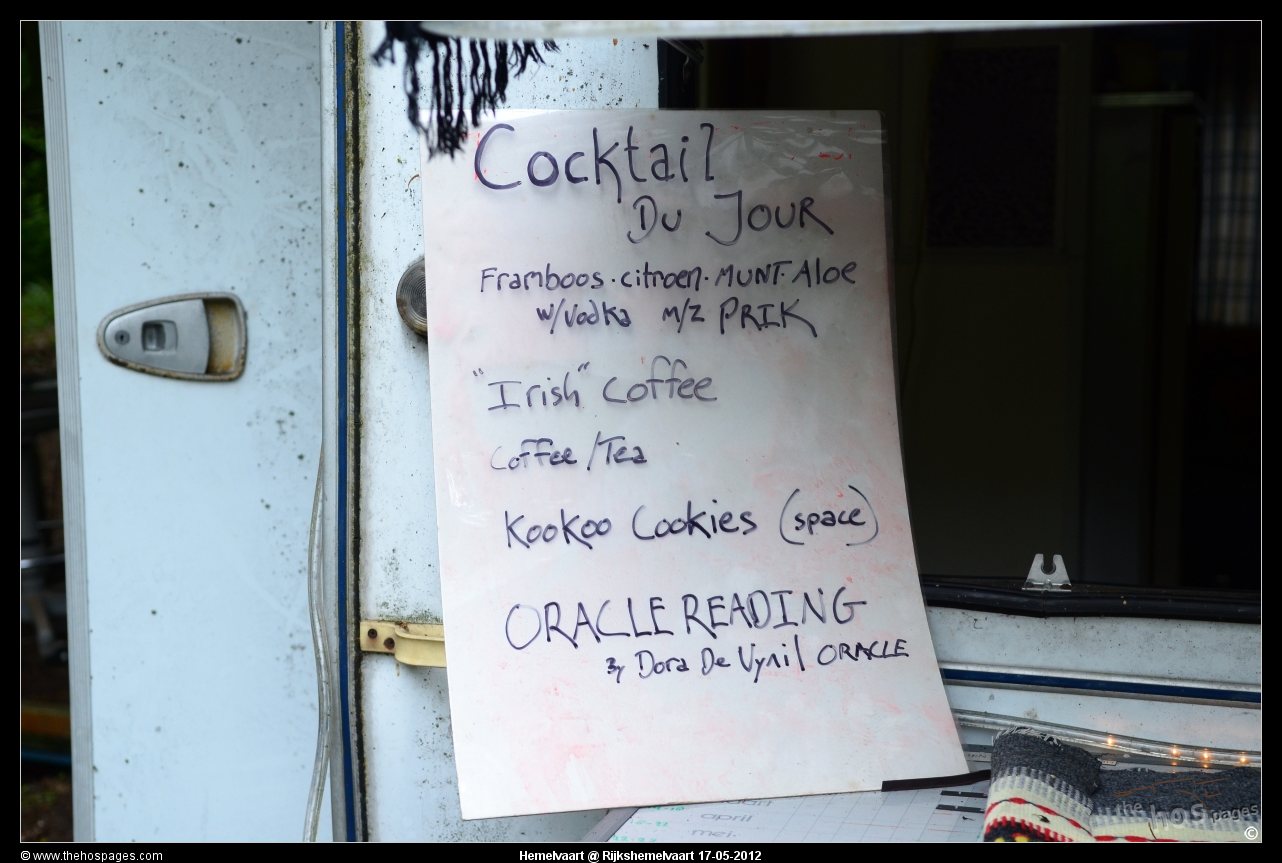 Cocktail
Du Jour
Framboos · citroen · MUNT · Aloe
w/vodka m/z PRIK
"Irish" Coffee
Coffee / Tea
Kookoo Cookies (space)
ORACLE READING
By Dora De Vynil ORACLE
april
mei
the hos pages
©
© www.thehospages.com
Hemelvaart @ Rijkshemelvaart 17-05-2012